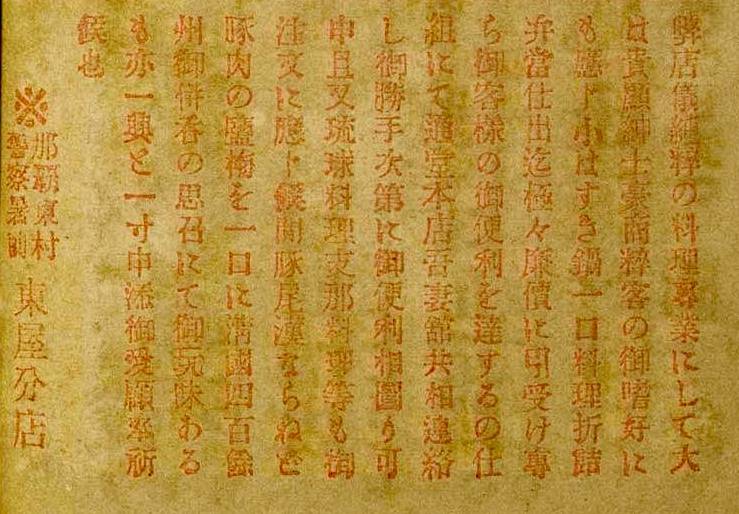 弊店儀純粹の料理專業にして大
は貴顯紳士豪商粹客の御嗜好に
も應ト小はすき鍋一口料理折詰
弁當仕出迄極々廉價に引受け專
ら御客樣の御便利を達するの仕
組にて通堂本店吾妻舘共相連絡
し御勝手次第に御便利相圖り可
申且又琉球料理支那料理等も御
注文に應ト候間豚尾漢ならねど
豚肉の鹽梅を一口に淸國四百餘
州御併呑の思召にて御玩味わる
も亦一興と一寸申添御愛顧奉祈
候也
※
那覇東村
警察署前
東屋分店